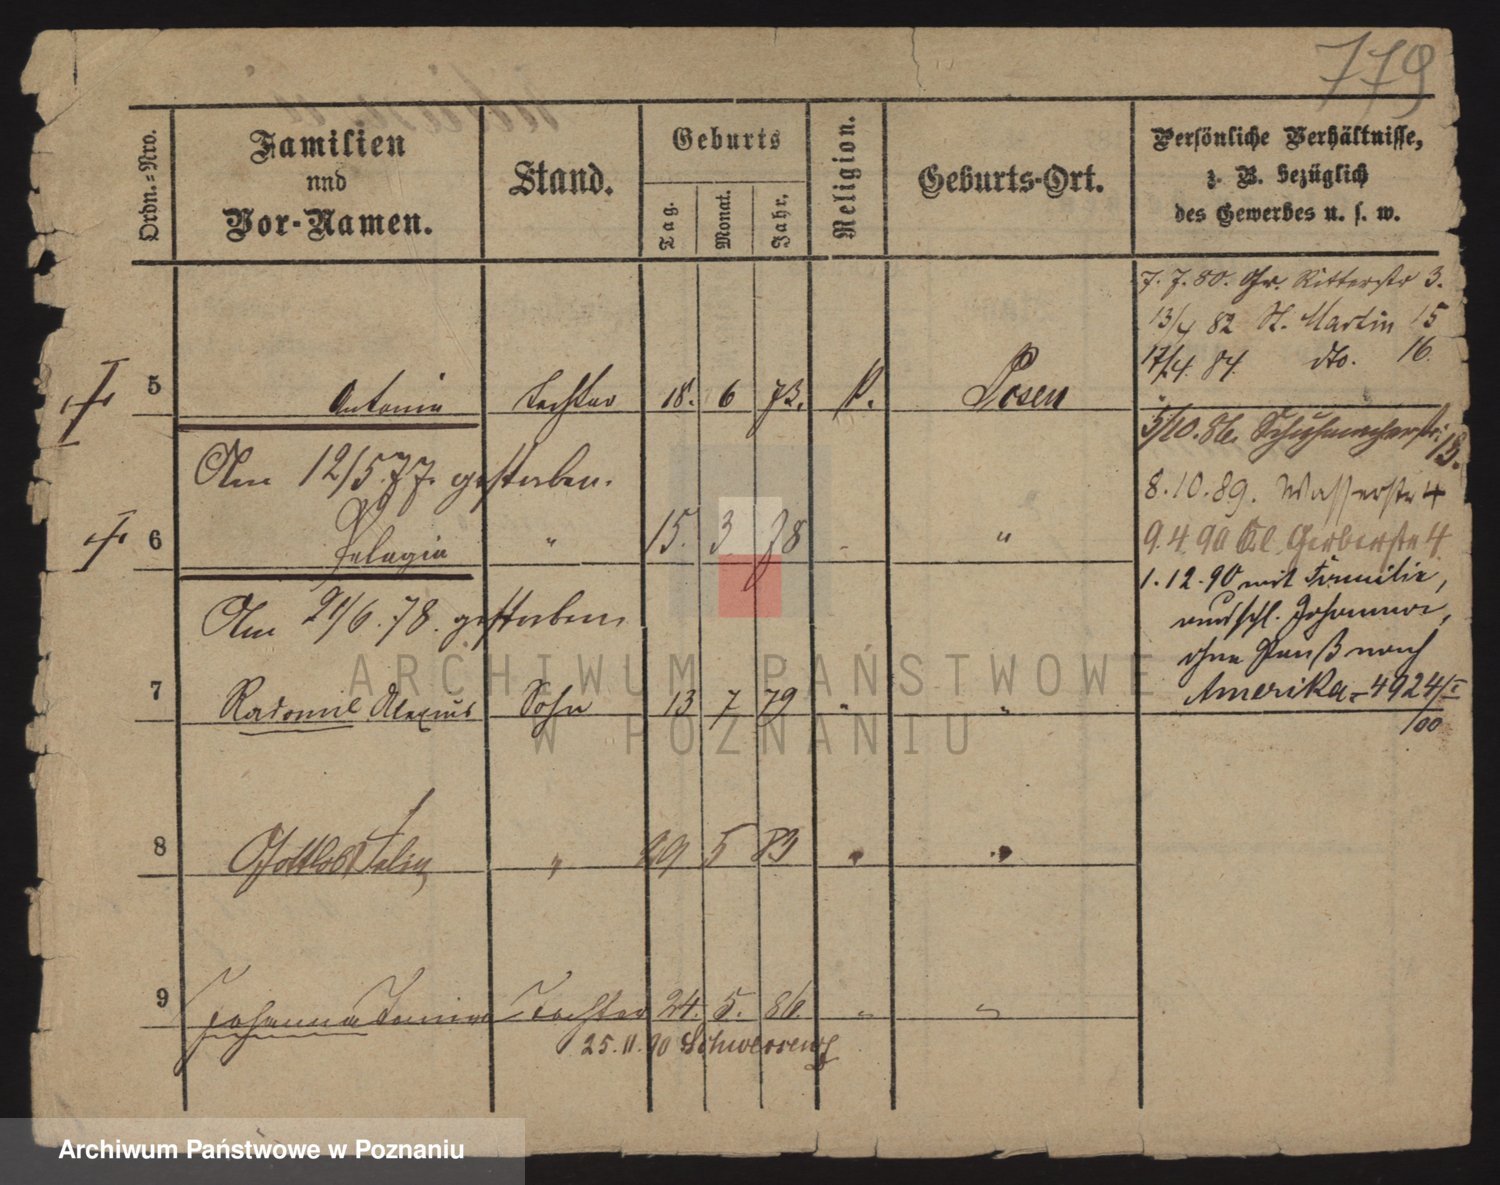 779
Ordn.-Nro.
Familien
und
Vor-Namen.
Stand.
Geburts
Tag.
Monat.
Jahr.
Religion.
Geburts-Ort.
Persönliche Verhältnisse,
z. B. bezüglich
des Gewerbes u. s. w.
7. 7. 80. Gr. Ritterstr 3.
13/4 82 St. Martin 15
17/4. 84. dto. 16.
5 Antonie Tochter 18. 6 73. k. Posen
5/10. 86. Schuhmacherstr. 13.
Am 12/5. 77. gestorben.
8. 10. 89. Wasserstr 4
6 Pelagia " 15. 3 78 "
9. 4. 90 Kl. Gerberstr 4
1. 12. 90 mit Familie,
Am 21/6. 78. gestorben
ausschl. Johanna,
ohne Pass nach
Amerika - 4924/I
7 Radomil Alexius Sohn 13 7 79 " "
/90
8 Gottlob " 29 5 83 " "
9 Johanna Tochter 24. 5. 86. " "
25. 11. 90 Schwersenz
ARCHIWUM PAŃSTWOWE
W POZNANIU
Archiwum Państwowe w Poznaniu